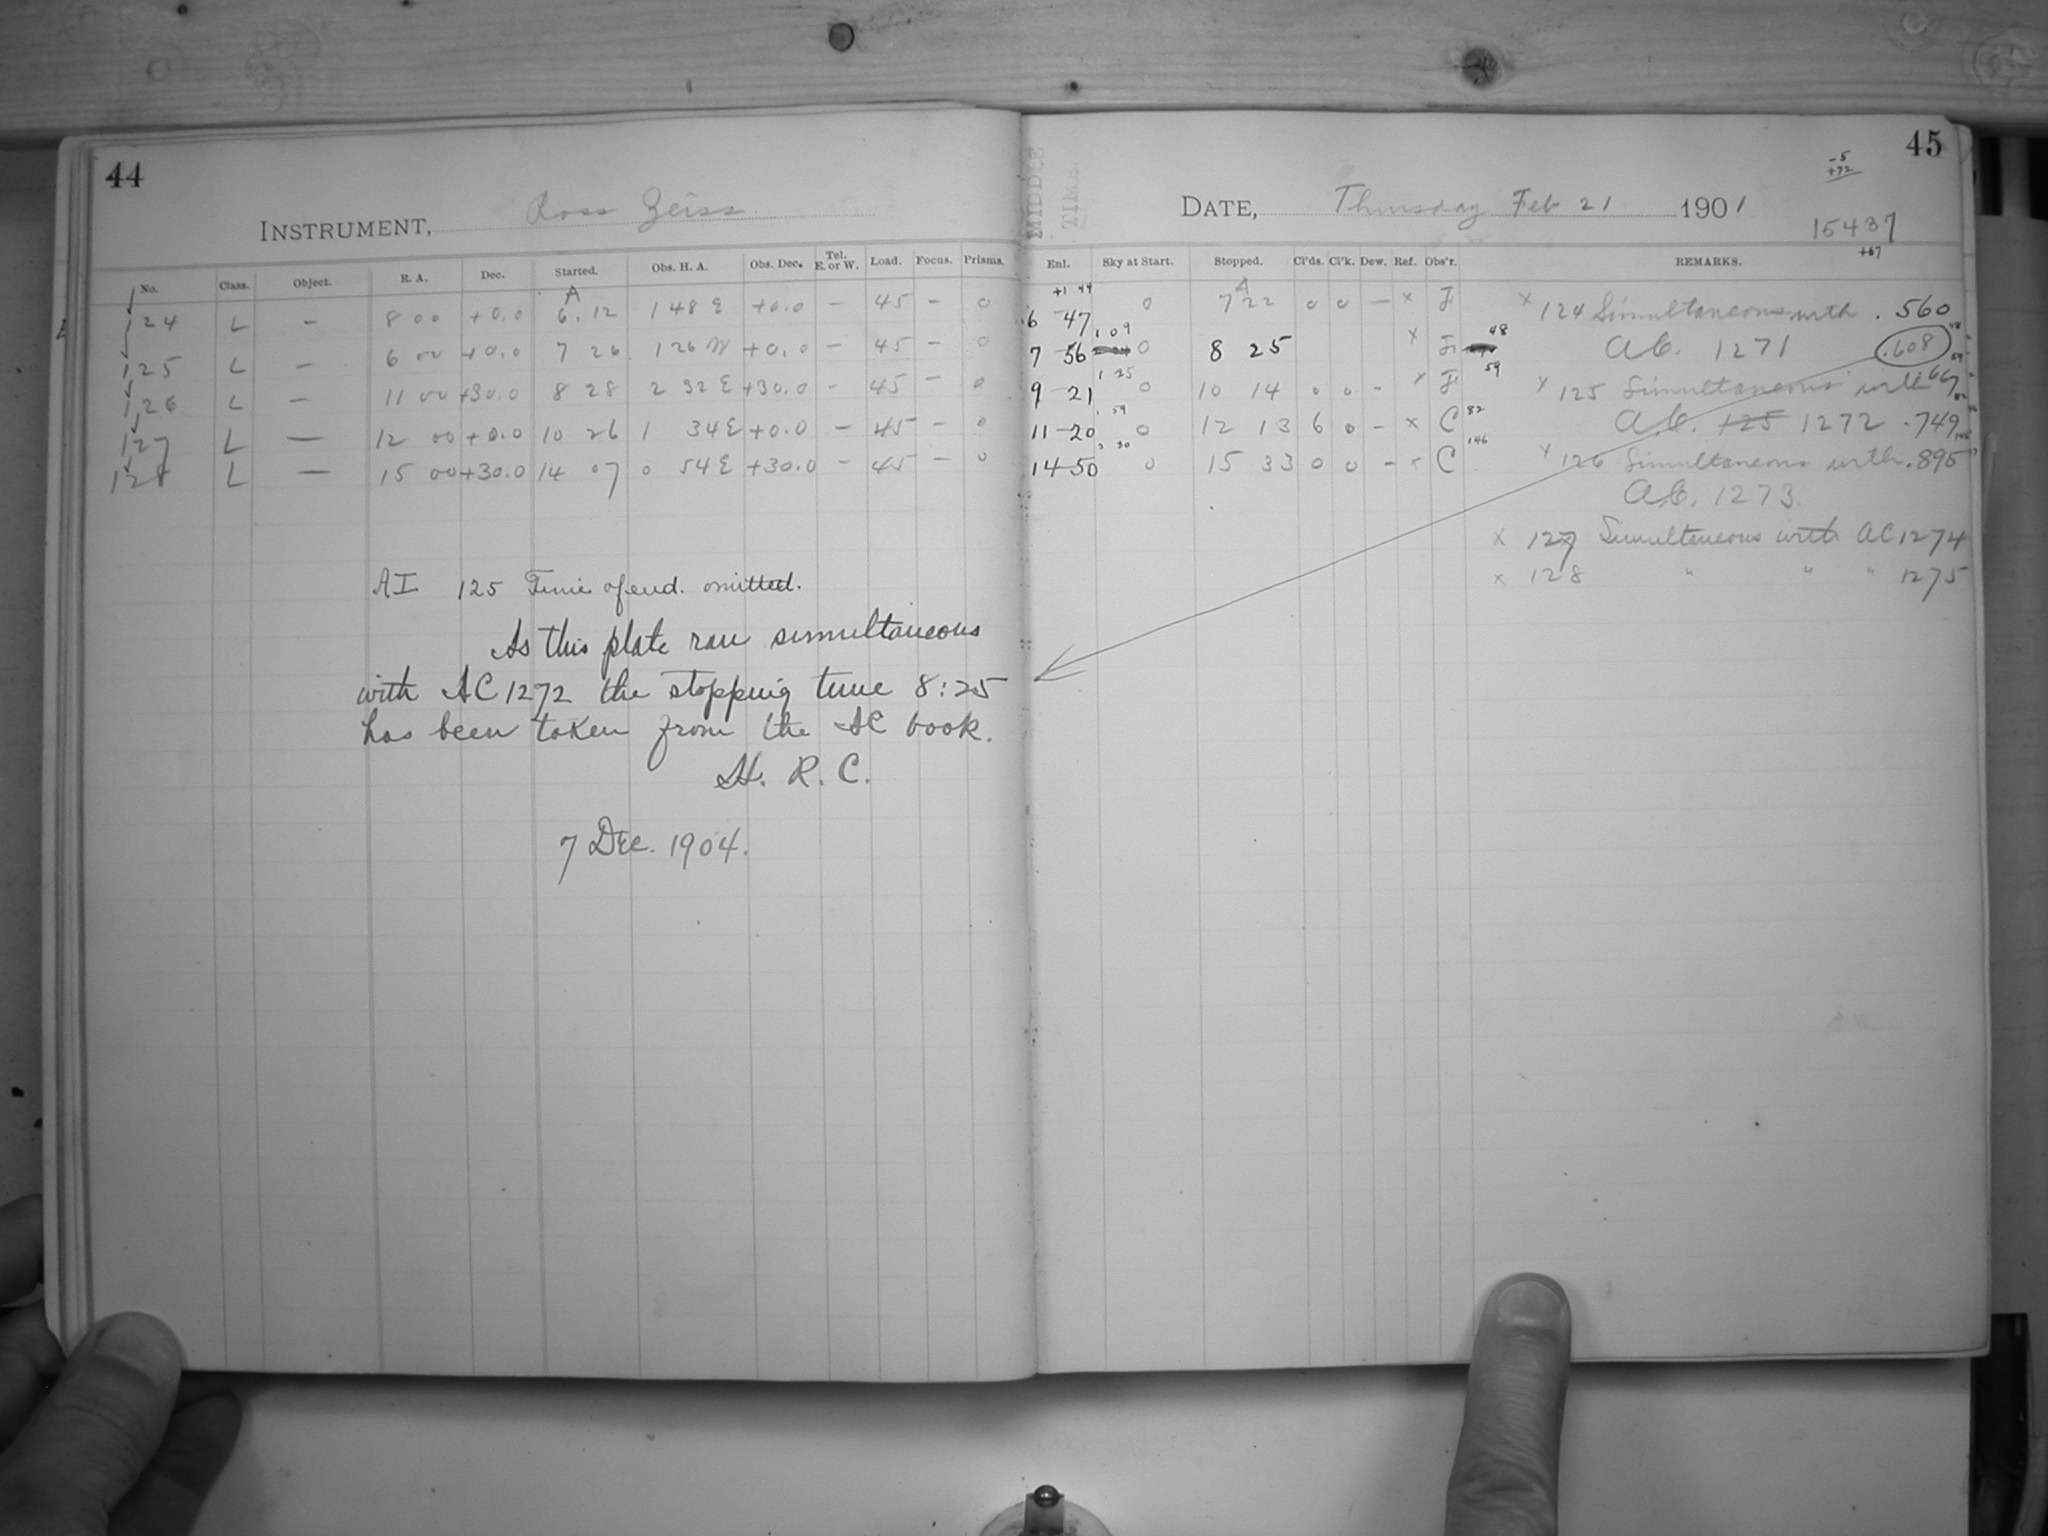 44
INSTRUMENT, Ross Zeiss
No. Class. Object. R. A. Dec. Started. Obs. H. A. Obs. Dec. Tel. E. or W. Load. Focus. Prisms.
A
124 L – 8 00 +0.0 6.12 1 48 E +0.0 – 45 – 0
125 L – 6 00 +0.0 7 26 1 26 W +0.0 – 45 – 0
126 L – 11 00 +30.0 8 28 2 32 E +30.0 – 45 – 0
127 L – 12 00 +0.0 10 26 1 34 E +0.0 – 45 – 0
128 L – 15 00 +30.0 14 07 0 54 E +30.0 – 45 – 0
AI 125 Time of end. omitted.
As this plate ran simultaneous
with AC 1272 the stopping time 8:25
has been taken from the AC book.
H. R. C.
7 Dec. 1904.
MIDDLE
TIME
45
-5
+72
DATE, Thursday Feb 21 1901
15437
+67
Enl. Sky at Start. Stopped. Cl'ds. Cl'k. Dew. Ref. Obs'r. REMARKS.
+1 44
6 47 0 7 22 0 0 – x F x 124 Simultaneous with .560
1 09
7 56 0 8 25 x F 48 A.C. 1271 .608
1 25 59
9 21 0 10 14 0 0 – x F x 125 Simultaneous with 667
1 59
11 20 0 12 13 6 0 – x C 82 A.C. 125 1272 .749
3 30
14 50 0 15 33 0 0 – x C 146 x 126 Simultaneous with .895
A.C. 1273.
x 127 Simultaneous with AC 1274
x 128 " " " 1275